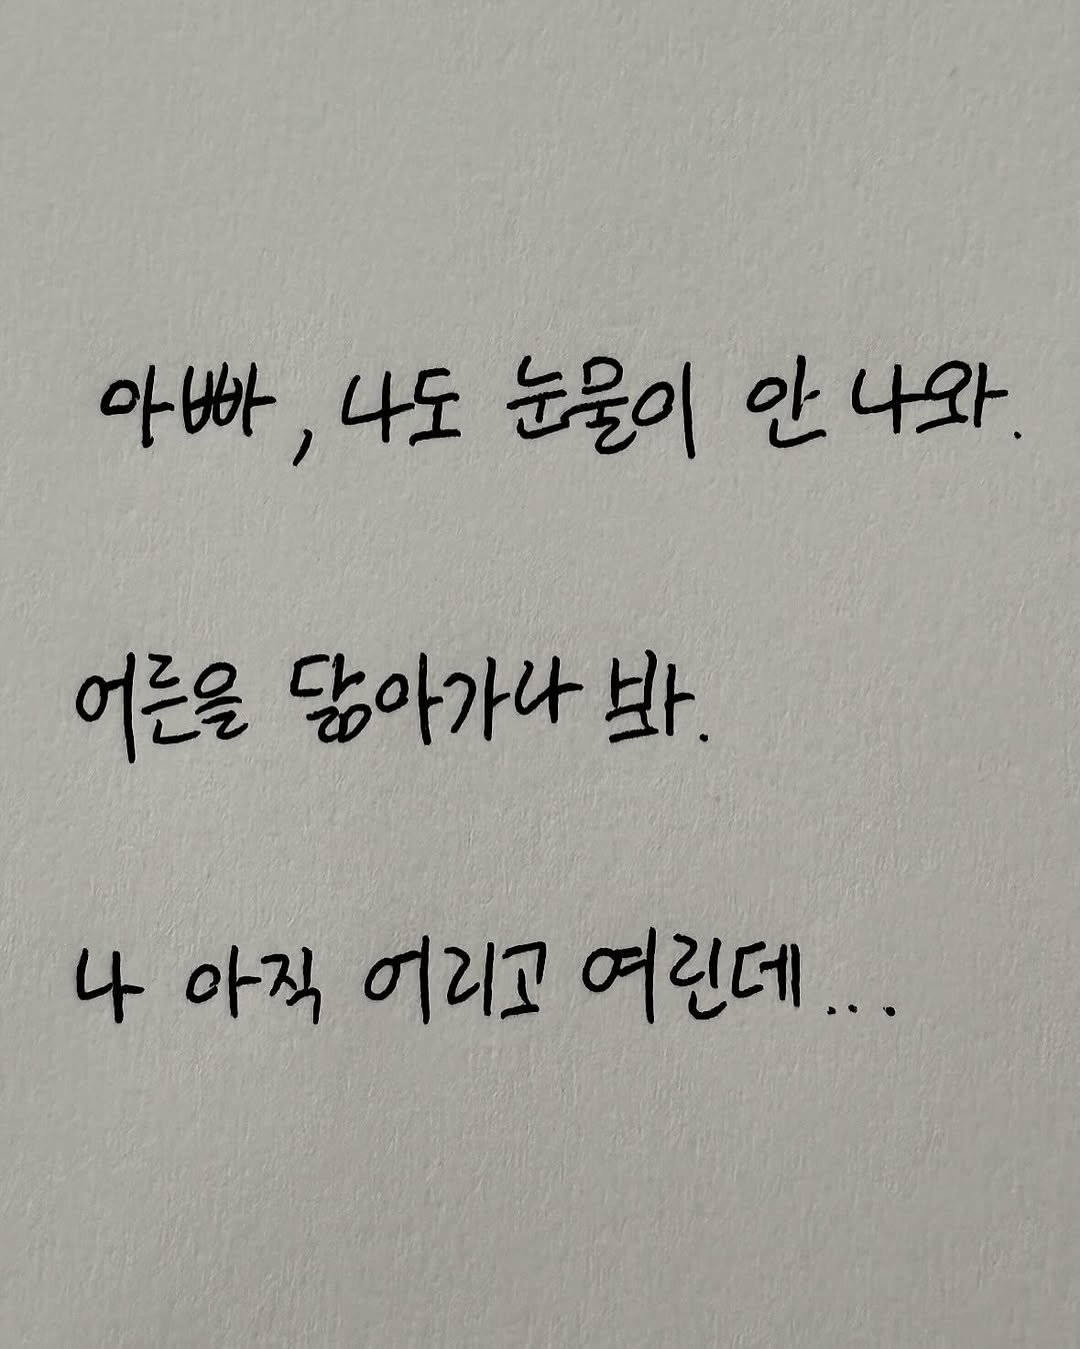 아빠, 나도 눈물이 안 나와.
어른을 닮아가나 봐.
나 아직 어리고 여린데...